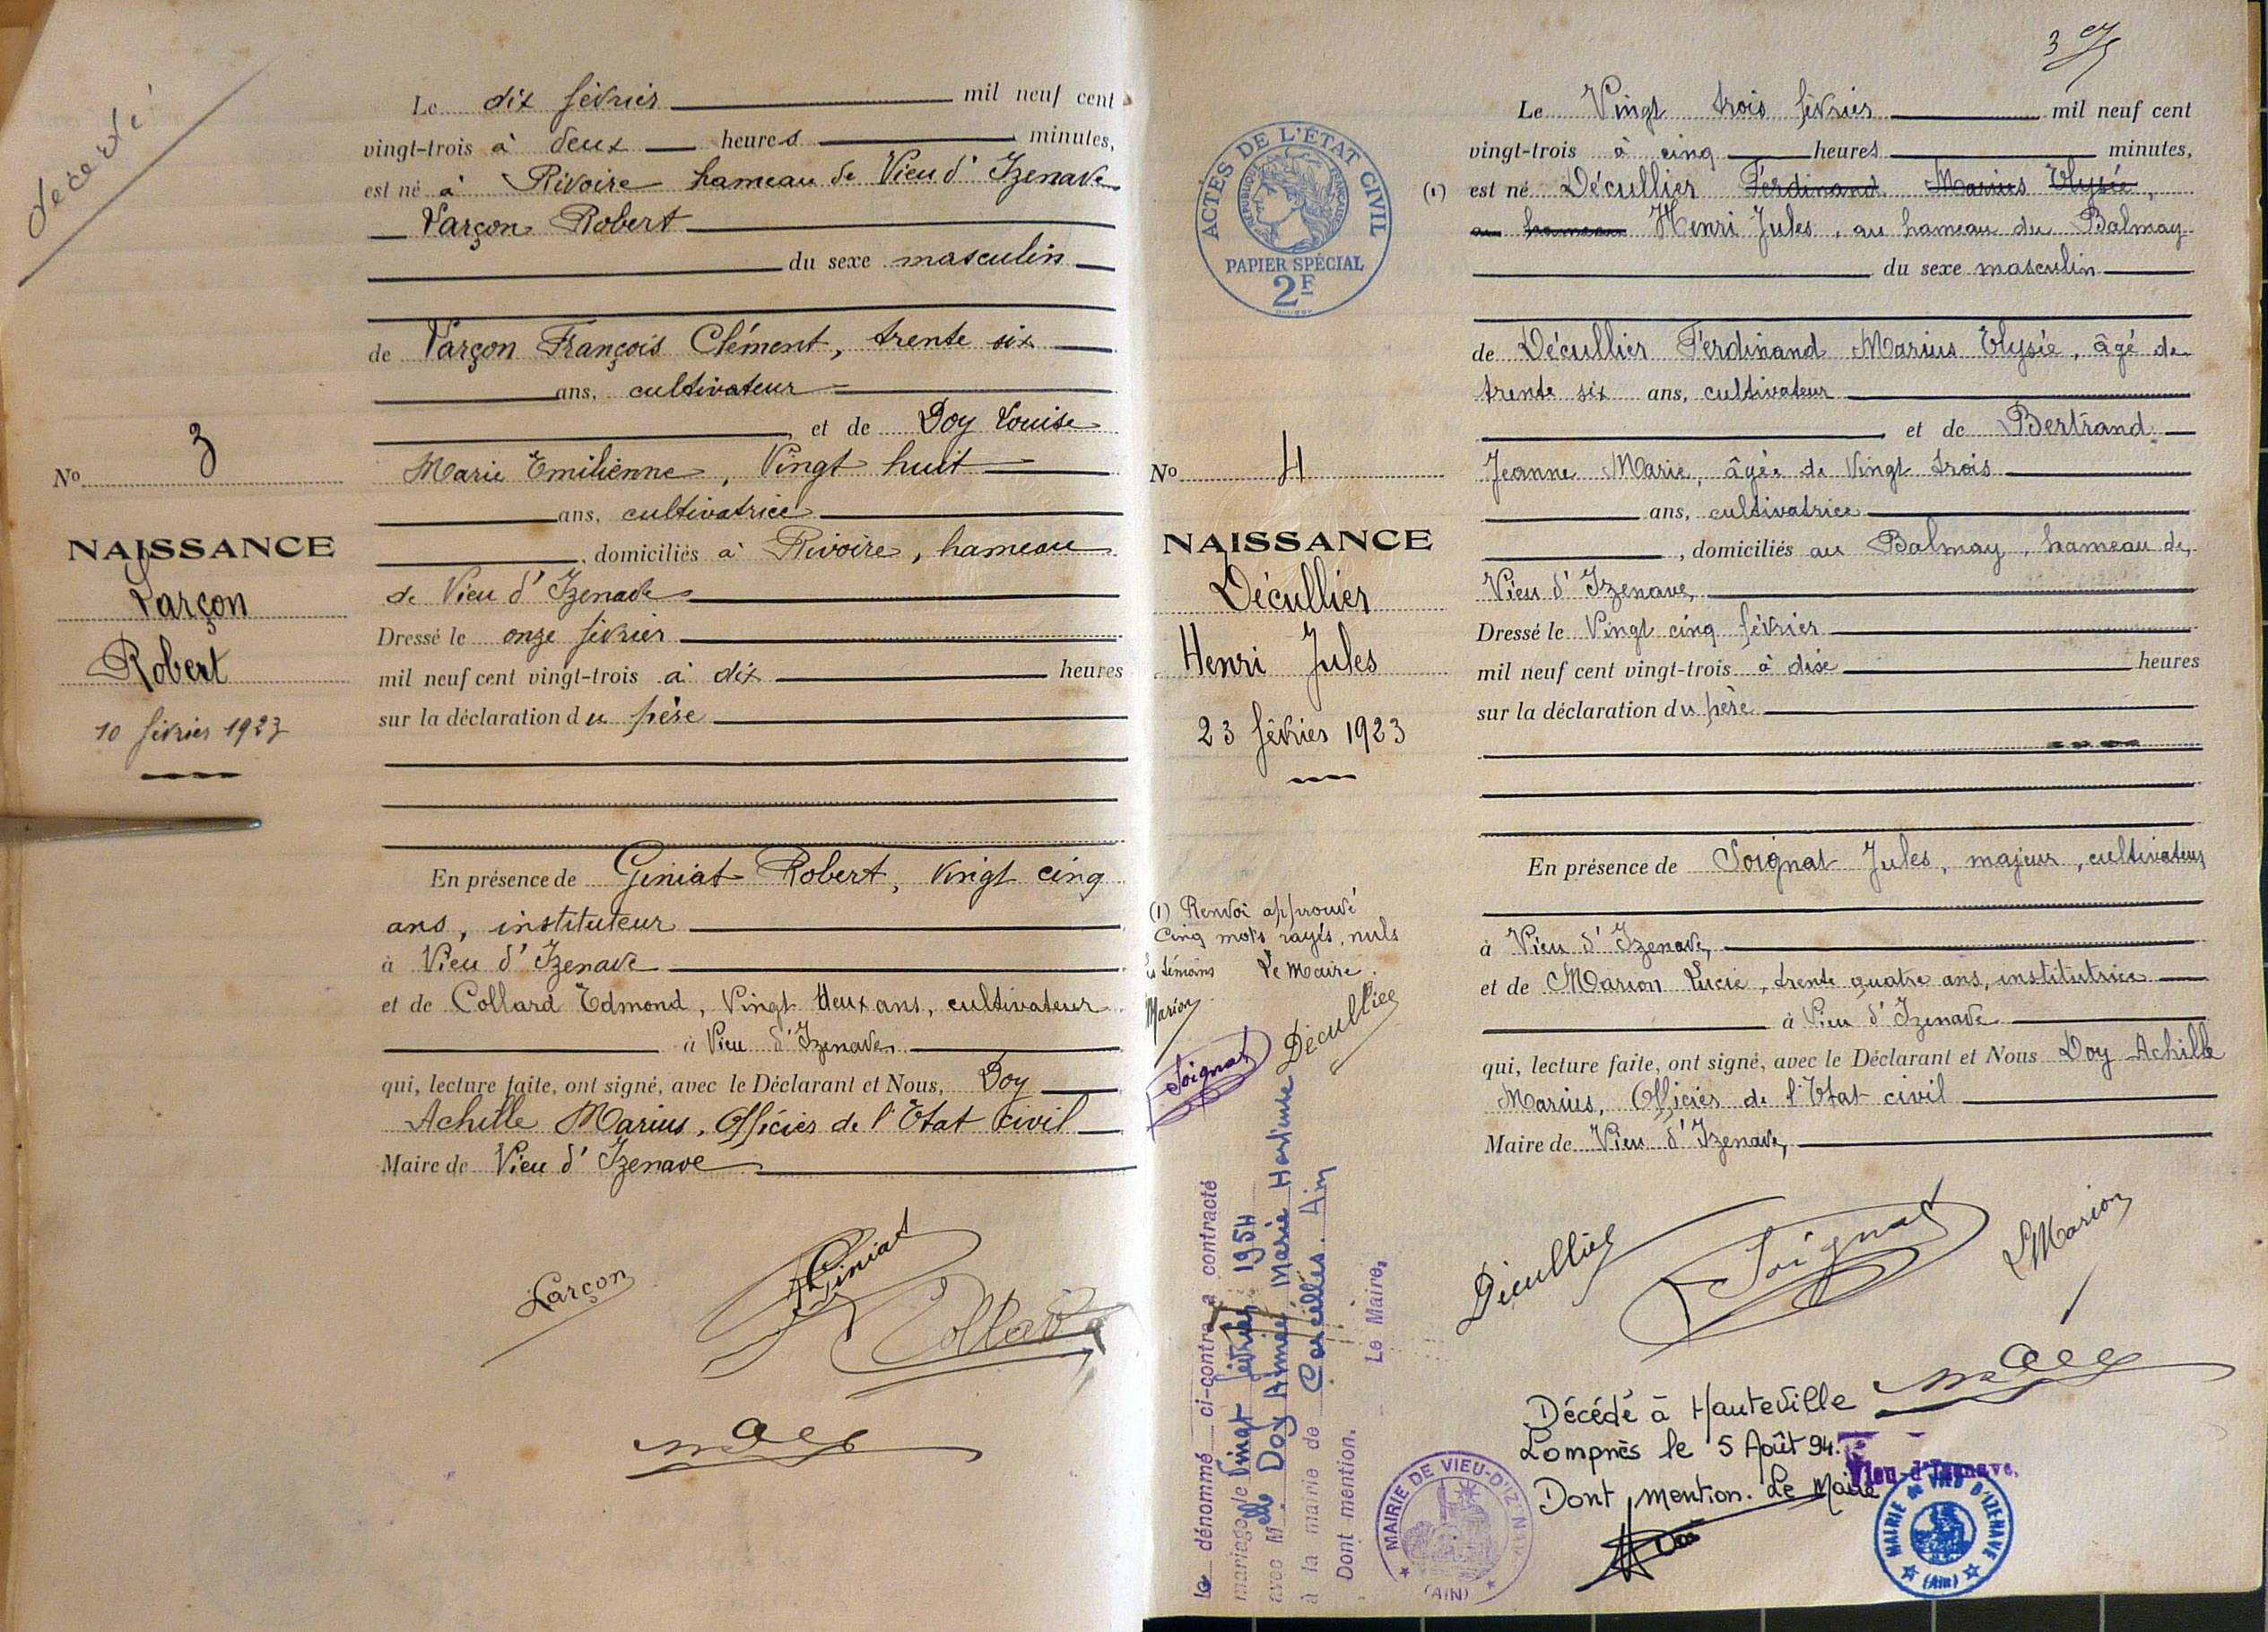 décédé
Le dix février mil neuf cent
vingt-trois à deux heures minutes,
est né à Rivoire hameau de Vieu d'Izenave
Larçon Robert
du sexe masculin
de Larçon François Clément, trente six
ans, cultivateur
et de Doy Louise
Marie Emilienne, Vingt huit
ans, cultivatrice
, domiciliés à Rivoire, hameau
de Vieu d'Izenave
Dressé le onze février
mil neuf cent vingt-trois à dix heures
sur la déclaration du père
En présence de Géniat Robert, vingt cinq
ans, instituteur
à Vieu d'Izenave
et de Collard Edmond, Vingt deux ans, cultivateur
à Vieu d'Izenave
qui, lecture faite, ont signé, avec le Déclarant et Nous, Doy
Achille Marius, Officier de l'Etat civil
Maire de Vieu d'Izenave
No 3
NAISSANCE
Larçon
Robert
10 février 1923
Larçon
Géniat
Collard
3
Le Vingt trois février mil neuf cent
vingt-trois à cinq heures minutes,
(1) est né Décullier Ferdinand Marius Elysée,
au hameau Henri Jules, au hameau du Balmay
du sexe masculin
de Décullier Ferdinand Marius Elysée, âgé de
trente six ans, cultivateur
et de Bertrand
Jeanne Marie, âgée de Vingt trois
ans, cultivatrice
, domiciliés au Balmay, hameau de
Vieu d'Izenave,
Dressé le Vingt cinq février
mil neuf cent vingt-trois à dix heures
sur la déclaration du père
En présence de Soignat Jules, majeur, cultivateur
à Vieu d'Izenave,
et de Marion Lucie, trente quatre ans, institutrice
à Vieu d'Izenave
qui, lecture faite, ont signé, avec le Déclarant et Nous Doy Achille
Marius, Officier de l'Etat civil
Maire de Vieu d'Izenave,
ACTES DE L'ÉTAT CIVIL
RÉPUBLIQUE FRANÇAISE
PAPIER SPÉCIAL
2F
No 4
NAISSANCE
Décullier
Henri Jules
23 février 1923
(1) Renvoi approuvé
Cinq mots rayés, nuls
Les témoins Le Maire.
Marion
Soignat
Décullier
le dénommé ci-contre a contracté
mariage le Vingt février 1954
avec Melle Doy Aimée Marie Hortense
à la mairie de Corcelles. Ain
Dont mention.
Le Maire,
MAIRIE DE VIEU-D'IZENAVE
(AIN)
Décullier
Soignat
LMarion
Décédé à Hauteville
Lompnès le 5 Août 94.
Dont mention. Le Maire
Vieu-d'Izenave,
MAIRIE de VIEU D'IZENAVE
(Ain)